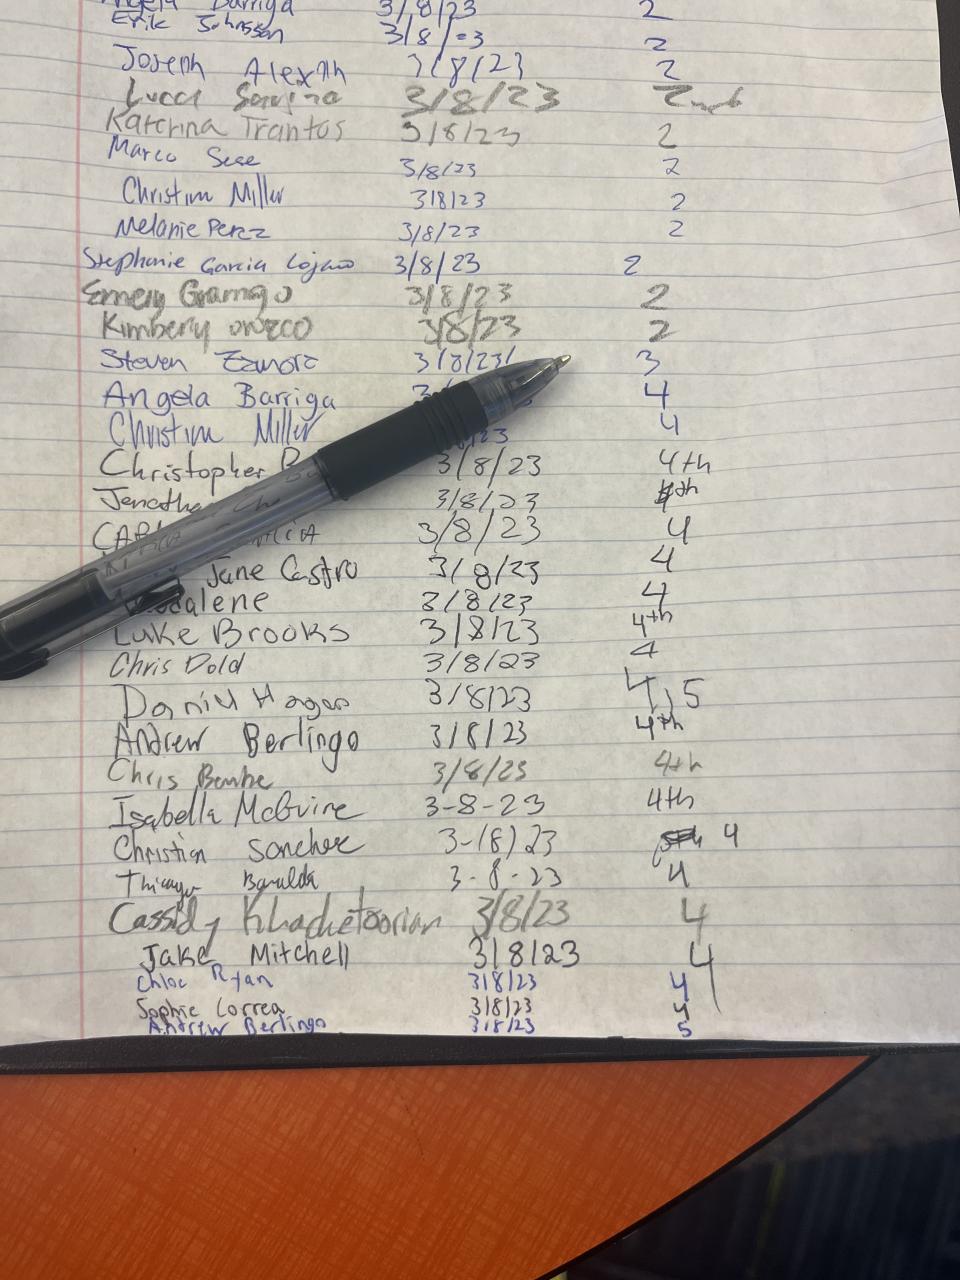 Angela Barriga 3/8/23 2
Erik Johnson 3/8/23 2
Joseph 3/8/23 2
Lucca 3/8/23 2nd
Katerina Trantos 3/8/23 2
Marco Sese 3/8/23 2
Christian Miller 3/8/23 2
Melanie Perez 3/8/23 2
Stephanie Garcia Lojano 3/8/23 2
Emery 3/8/23 2
Kimbery orozco 3/8/23 2
Steven Zamora 3/8/23/ 3
Angela Barriga 4
Christian Miller 4
Christopher 3/8/23 4th
3/8/23 4th
3/8/23 4
Jane Castro 3/8/23 4
3/8/23 4
Luke Brooks 3/8/23 4th
Chris Dold 3/8/23 4
Daniel Hagan 3/8/23 4,5
Andrew Berlingo 3/8/23 4th
Chris 3/8/23 4th
Isabella McGuire 3-8-23 4th
Christian Sanchez 3-(8) 23 4
3-8-23 4
Cassidy Khachetoorian 3/8/23 4
Jake Mitchell 3/8/23 4
Chloe Ryan 3/8/23 4
Sophie Correa 3/8/23 4
Andrew Berlingo 3/8/23 5